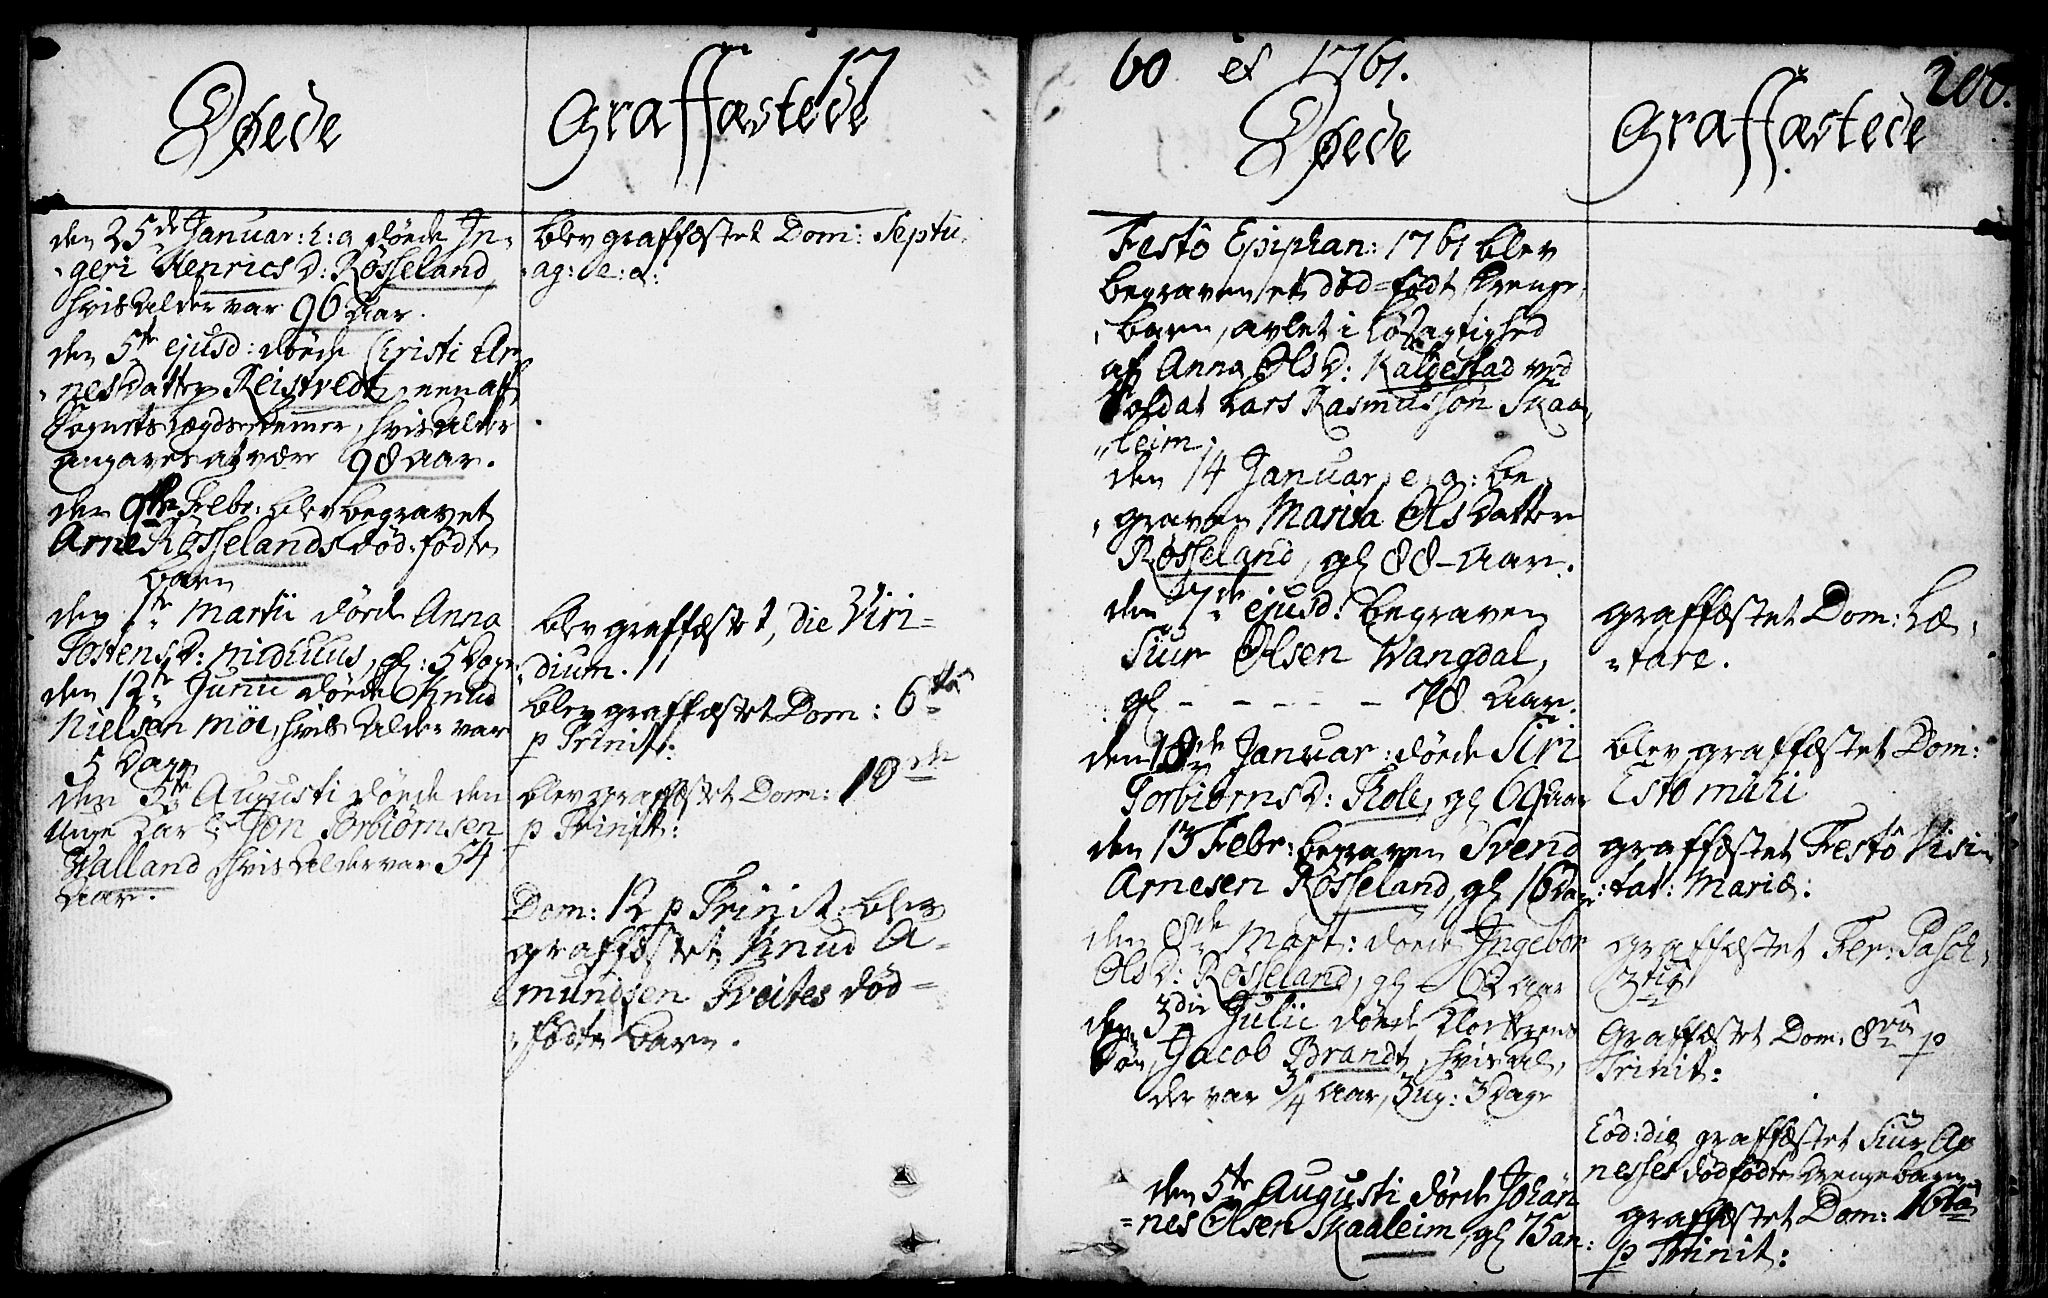 17
60 et 1761.
200.
Døede
Graffæstede
den 25de Januar: h: a døede In-
geri Henrics D: Røsseland
hvis Alder var 96 Aar.
den 5te ejusd: døede Christi Ar
nesdatter Reistvedt, een aff
Sognets Lægds Lemer, hvis Alder
angaves at være 98 aar.
den 9de Febr: blev begravet
Arne Røsselands død-fødte
barn
den 1te Martii døede Anna
Tostens D: Midhuus, gl: 5 Dage
den 12te Junii døede Knud
Nielsen Moe, hvis Alder var
5 Dage
den 3die Augusti døede den
unge Karl: Jon Torbiørnsen
Walland hvis Alder var 54
Aar.
blev graffæstet Dom: Septu-
ag: e: a:
blev graffæstet, die Viri-
dium.
blev graffæstet Dom: 6ta
p Trinit:
blev graffæstet Dom: 10de
p Trinit:
Dom: 12 p Trinit: blev
graffæstet Knud A-
mundsen Treites død-
fødte barn.
Døede
Graffæstede
Festô Epiphan: 1761 blev
begraven et død-født Drenge-
barn, avlet i Løsagtighed
af Anna Ols D: Kaldestad ved
Soldat Lars Rasmusson Skaa-
leim.
den 14 Januar, e, a: be-
graven Marita Olsdatter
Røsseland, gl 88 Aar.
den 7de ejusd: begraven
Siur Olsen Wangdal,
gl - - - - - 78 Aar.
den 18de Januar: døede Siri
Torbiørns D: Tkole, gl 69 Aar
den 13 Febr: begraven Svend
Arnesen Røsseland, gl 16 Dage
den 8de Mart: døede Ingebor
Ols D: Røsseland, gl - 62 Aar
den 3die Julii døede Klokkerens
Søn Jacob Brandt, hvis Al-
der var 3/4 Aar, 3 ug: 3 Dage
den 5te Augusti døede Johan
nes Olsen Skaaleim, gl 75 an:
graffæstet Dom: Læ-
tare.
blev graffæstet Dom:
Esto mihi
graffæstet Festô Visi-
tat: Mariæ:
graffæstet Fer: Pasch.
3tiâ
Graffæstet Dom: 8vâ p
Trinit:
Eôd: die graffæstet Siur Ar
nesses dødfødte Drengebarn
graffæstet Dom: 16tâ
p Trinit: